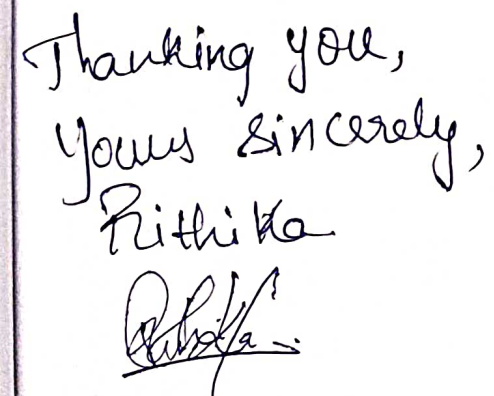 Thanking you,
Yours sincerely,
Rithika